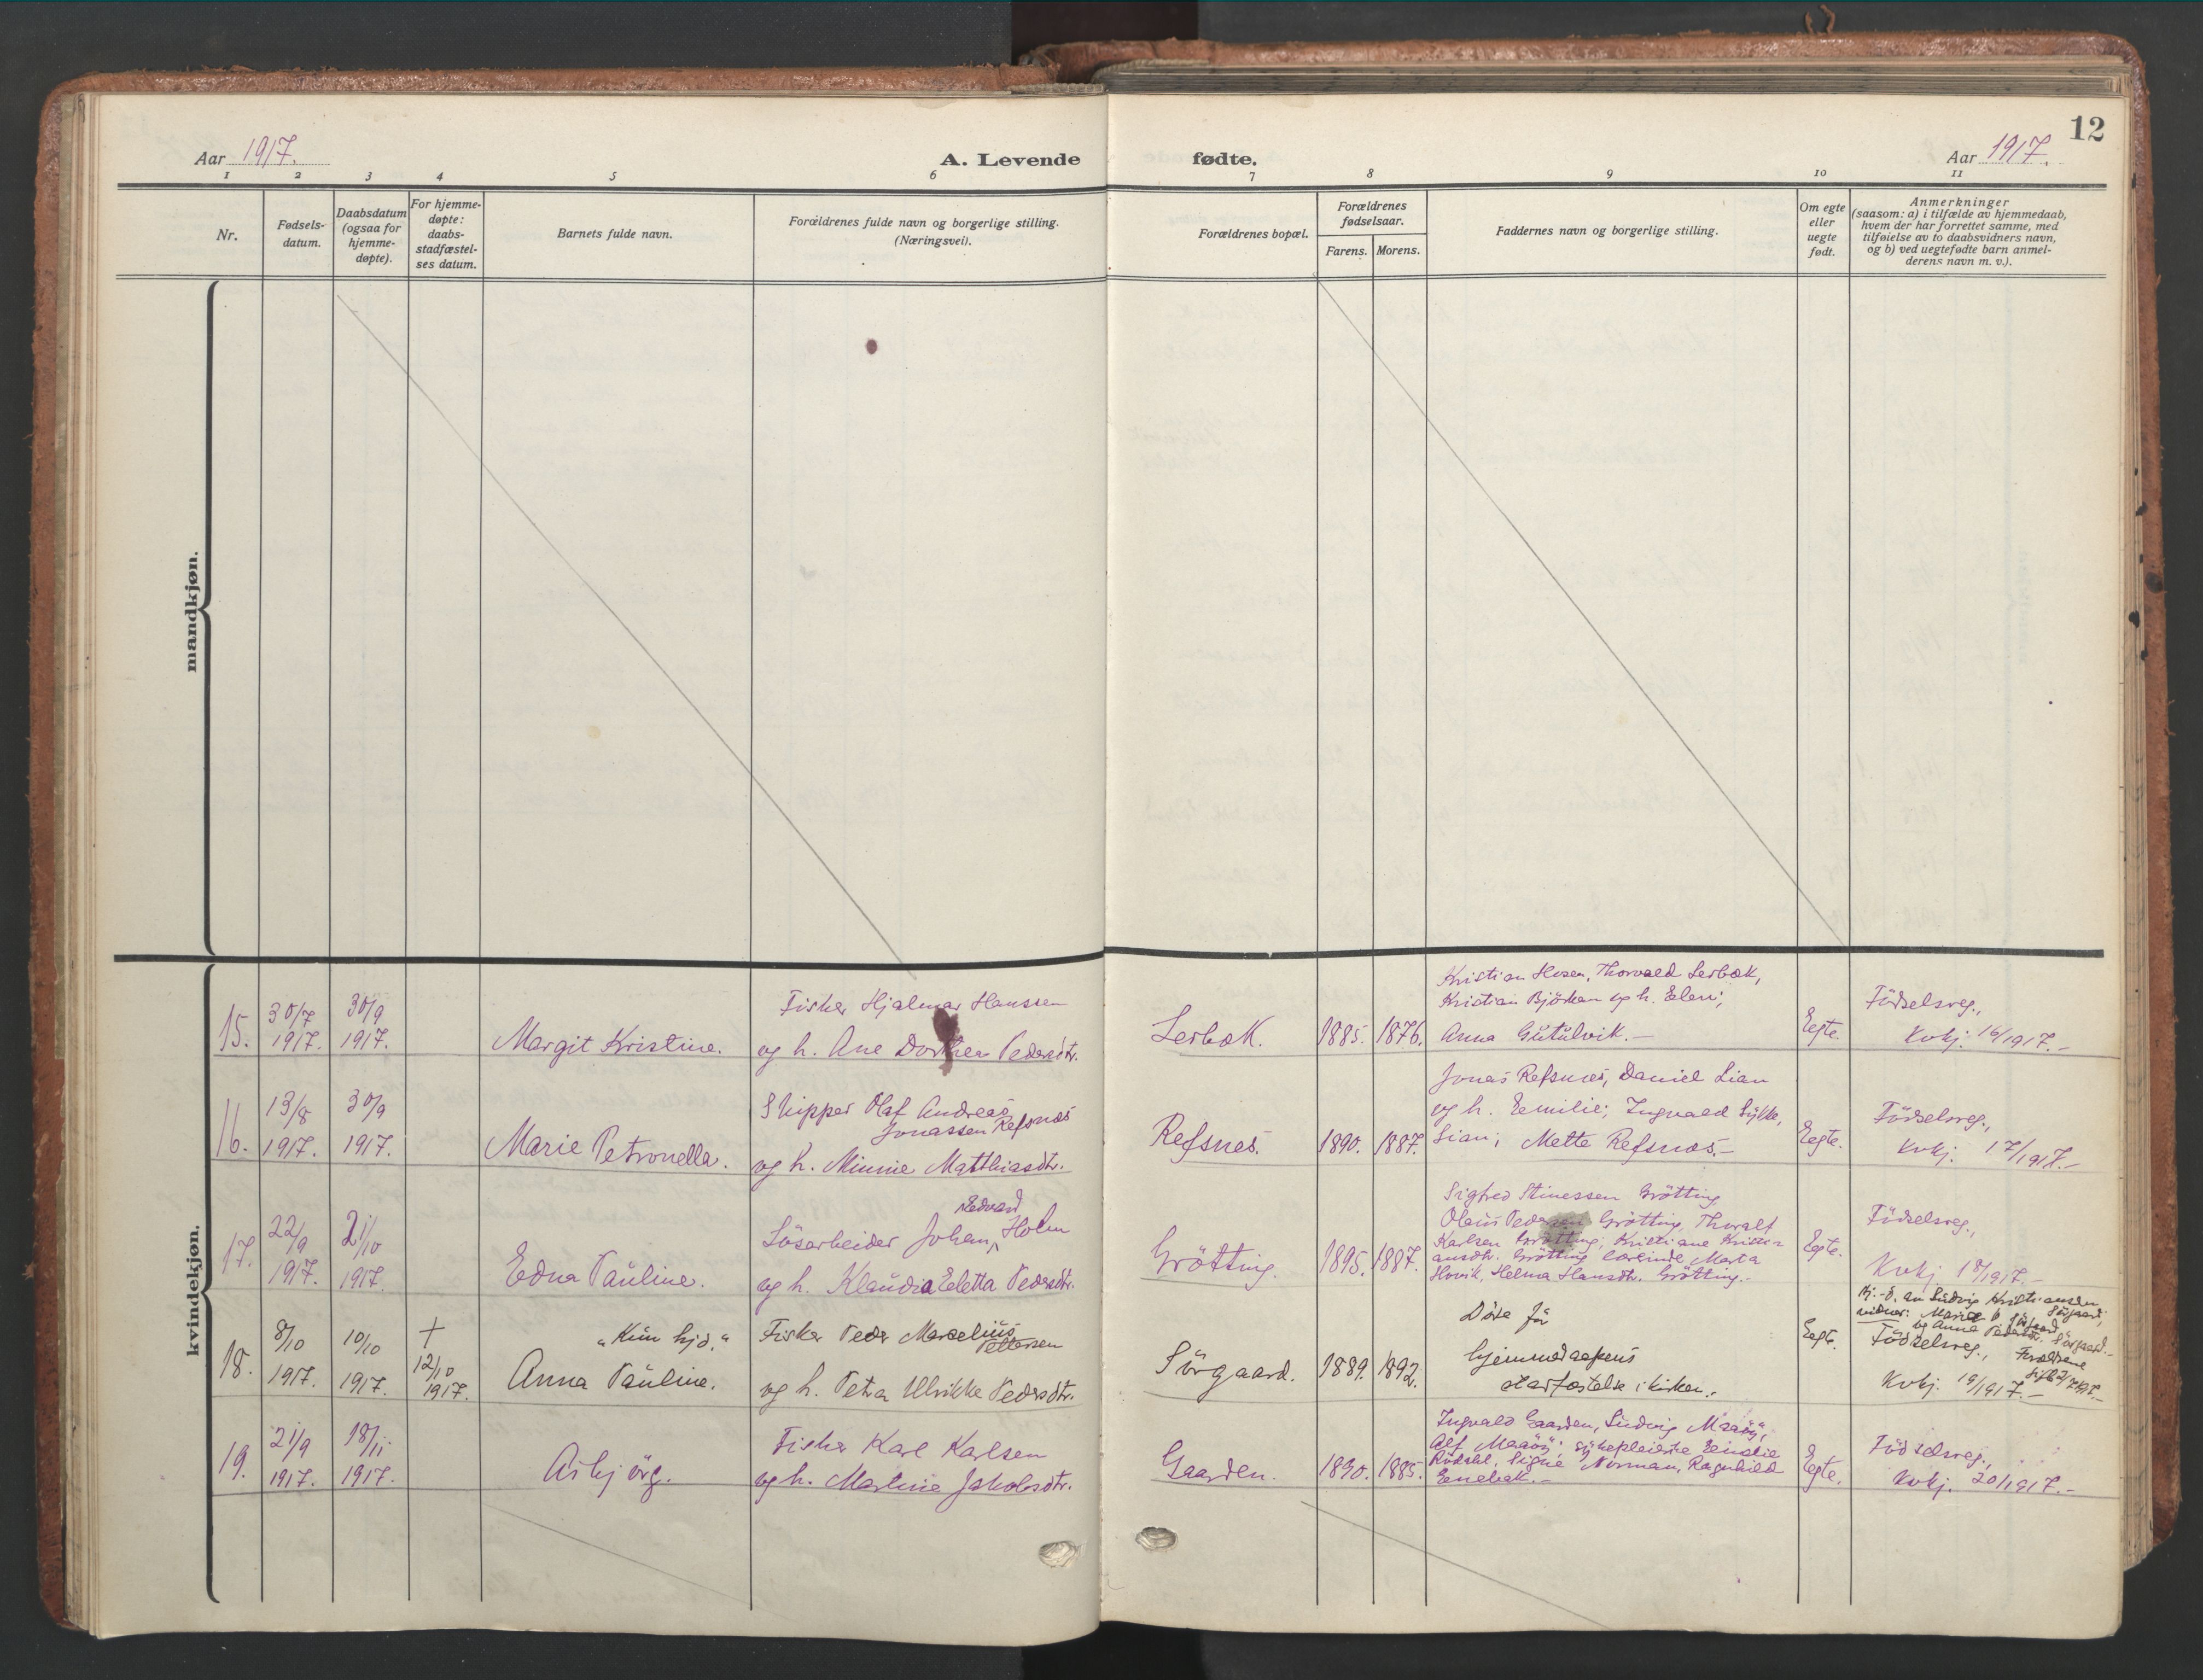 12
Aar 1917.
A. Levende
fødte.
Aar 1917.
1 2 3 4 5 6 7 8 9 10 11
Nr.
Fødsels-
datum.
Daabsdatum
(ogsaa for
hjemme-
døpte).
For hjemme-
døpte:
daabs-
stadfæstel-
ses datum.
Barnets fulde navn.
Forældrenes fulde navn og borgerlige stilling.
(Næringsvei).
Forældrenes bopæl.
Forældrenes
fødselsaar.
Farens. Morens.
Faddernes navn og borgerlige stilling.
Om egte
eller
uegte
født.
Anmerkninger
(saasom: a) i tilfælde av hjemmedaab,
hvem der har forrettet samme, med
tilføielse av to daabsvidners navn,
og b) ved uegtefødte barn anmel-
derens navn m. v.).
mandkjøn.
kvindekjøn.
15.
30/7
1917.
30/9
1917.
Margit Kristine.
Fisker Hjalmar Hanssen
og h. Ane Dorthea Pedersdtr.
Lerbæk.
1885. 1876.
Kristian Hosen, Thorvald Lerbæk,
Kristian Björkan og h. Elen;
Anna Gutulvik.-
Egte.
Födselsreg.,
Kvkj. 16/1917.-
16.
13/8
1917.
30/9
1917.
Marie Petronella.
Skipper Olaf Andreas
Jonassen Refsnæs
og h. Minnie Matthiasdtr.
Refsnes.
1890. 1887.
Jonas Refsnæs, Daniel Lian
og h. Emilie; Ingvald
Lian; Mette Refsnæs.-
Egte.
Födselsreg.,
Kvkj. 17/1917.-
17.
22/9
1917.
21/10
1917.
Edna Pauline.
Edvard
Lösarbeider Johan Holm
og h. Klaudia Eletta Pedersdtr.
Grötting.
1895. 1887.
Sigfred Stinessen Grötting
Olaus Pedersen Grötting, Thoralf
Karlsen Grötting; Kristiane Kristi-
ansdtr. Grötting, lærerinde Marta
Hovik, Helma Hansdtr. Grötting.-
Egte.
Födselsreg.,
Kvkj. 18/1917.-
18.
8/10
1917.
10/10
1917.
+
12/10
1917.
"Kun hjd."
Anna Pauline.
Fisker Peder Marselius
Pettersen
og h. Petra Ulrikke Pedersdtr.
Sörgaard.
1889. 1892.
Döde för
hjemmedaapens
stadfæstelse i kirken.
Egte.
Hj.-d. av Ludvig Kristiansen
Sörgaard,
vidner: Marie
og Anna Pedersdtr. Sörgaard.-
Födselsreg., Forældrene
Kvkj. 19/1917.-
19.
21/9
1917.
18/11
1917.
Asbjörg.
Fisker Karl Karlsen
og h. Martine Jakobsdtr.
Gaarden.
1890. 1885.
Ingvald Gaarden, Ludvig Maaöy,
Alf Maaöy; sykepleierske Emelie
Rödsæl, Signe Norman, Ragnhild
Enebak.-
Egte.
Födselsreg.,
Kvkj. 20/1917.-